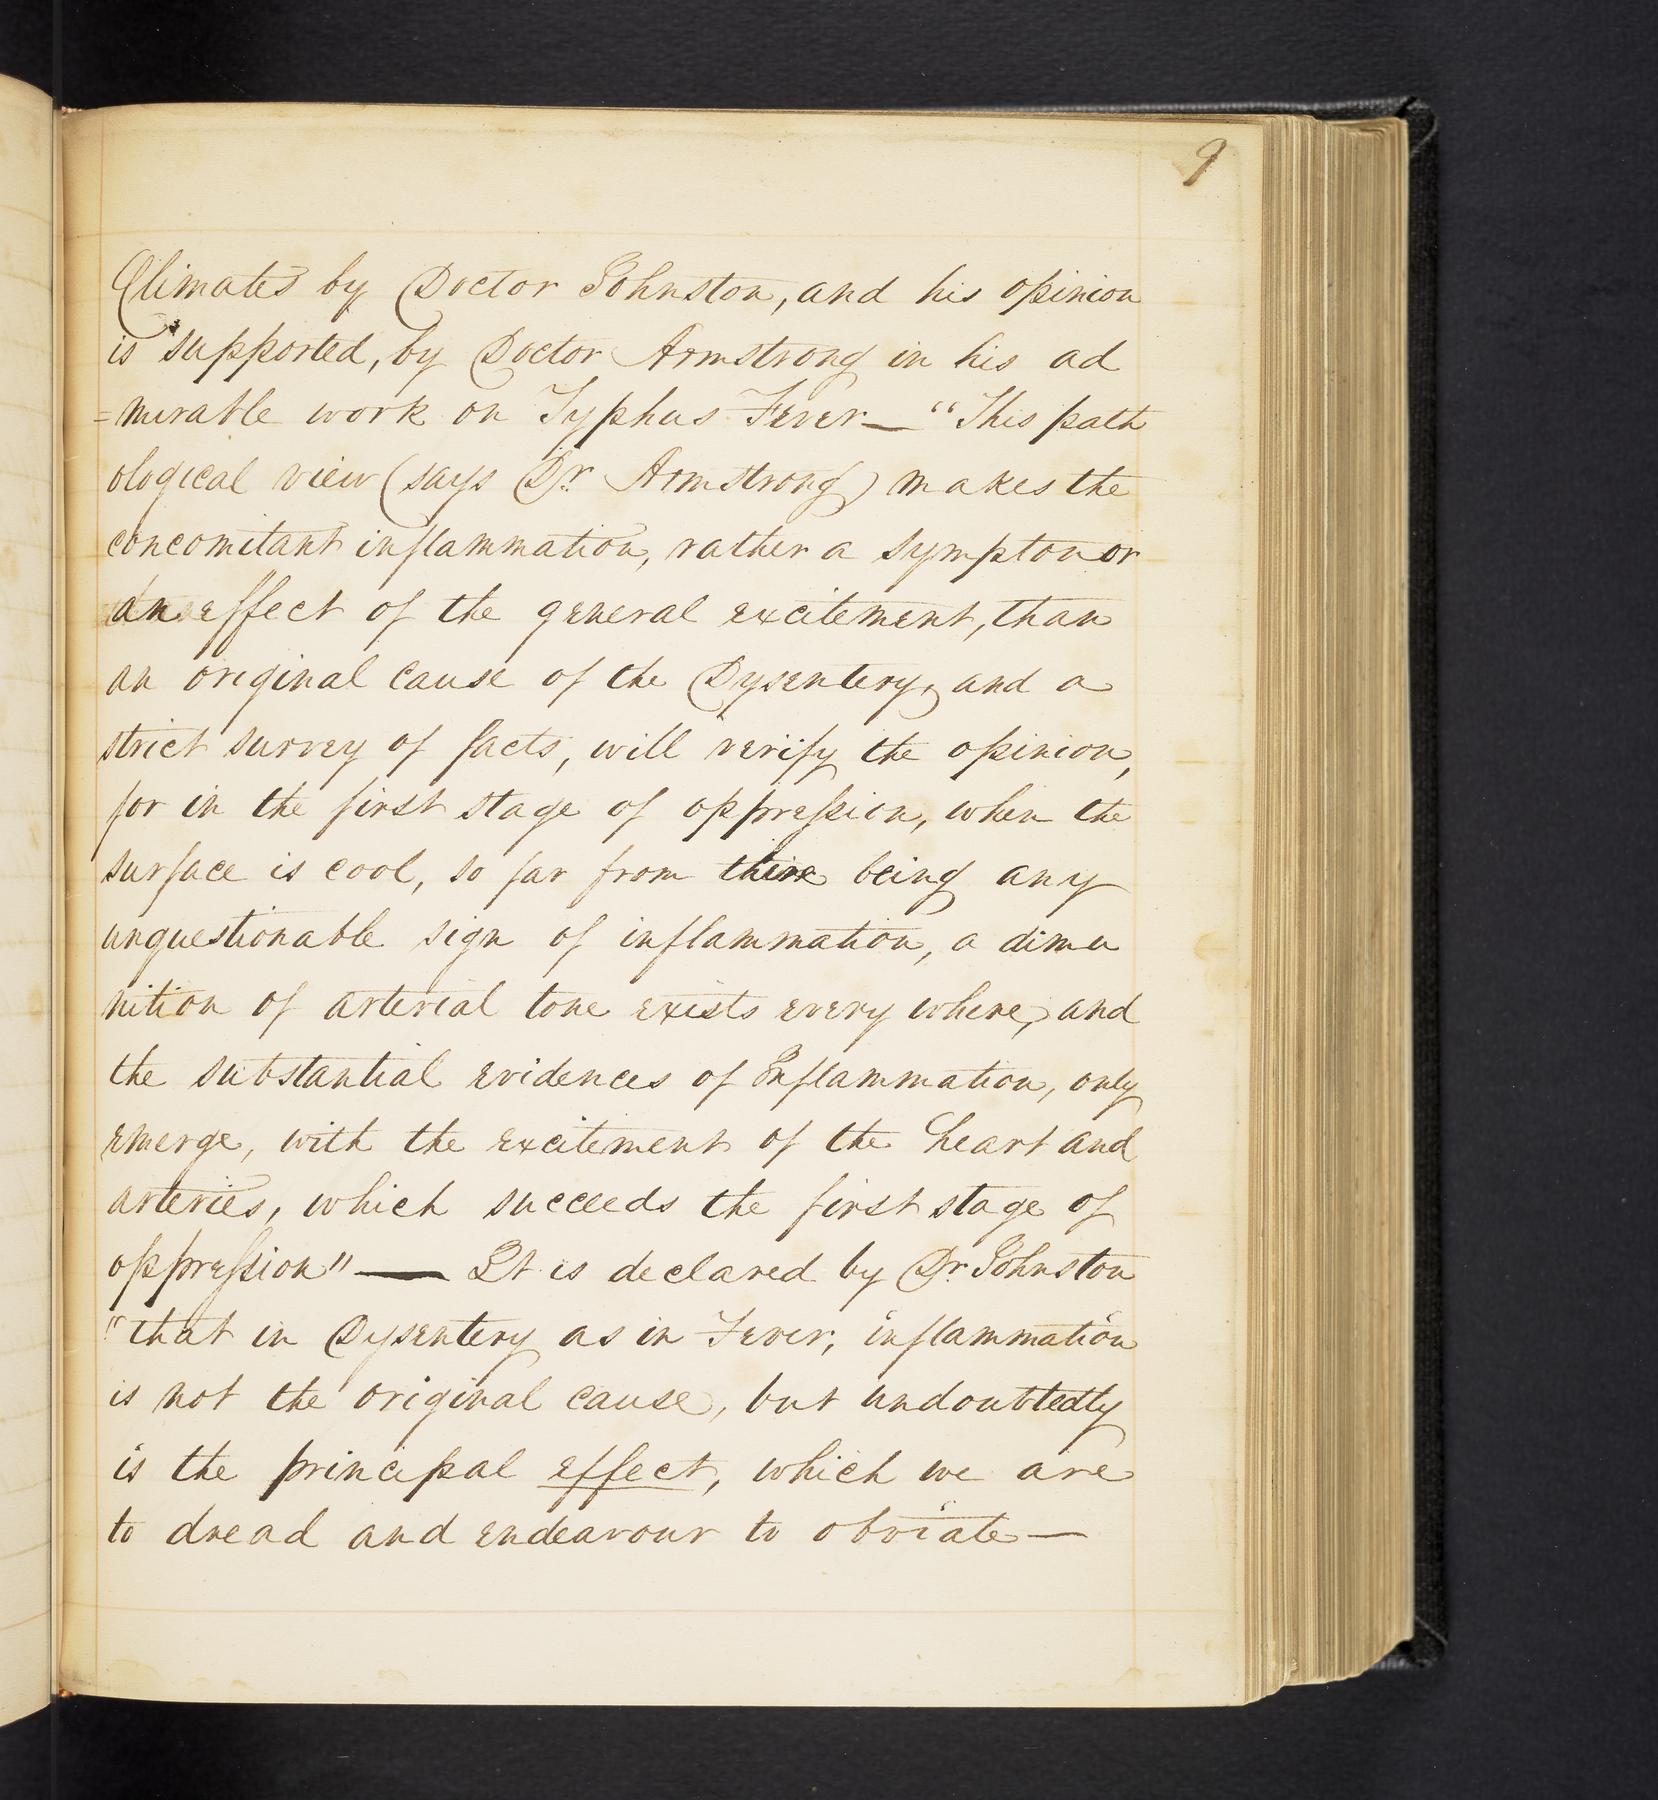 9
Climates by Doctor Johnston, and his opinion
is supported, by Doctor Armstrong in his ad
=mirable work on Typhus Fever — "This path
ological view (says Dr. Armstrong) makes the
concomitant inflammation, rather a sympton or
an effect of the general excitement, than
an original cause of the Dysentery, and a
strict survey of facts, will verify the opinion,
for in the first stage of oppression, when the
surface is cool, so far from there being any
unquestionable sign of inflammation, a dimu
nition of arterial tone exists every where, and
the substantial evidences of Inflammation, only
emerge, with the excitement of the heart and
arteries, which succeeds the first stage of
oppression" — It is declared by Dr. Johnston
"that in Dysentery as in Fever, inflammation
is not the original cause, but undoubtedly
is the principal effect, which we are
to dread and endeavour to obviate —